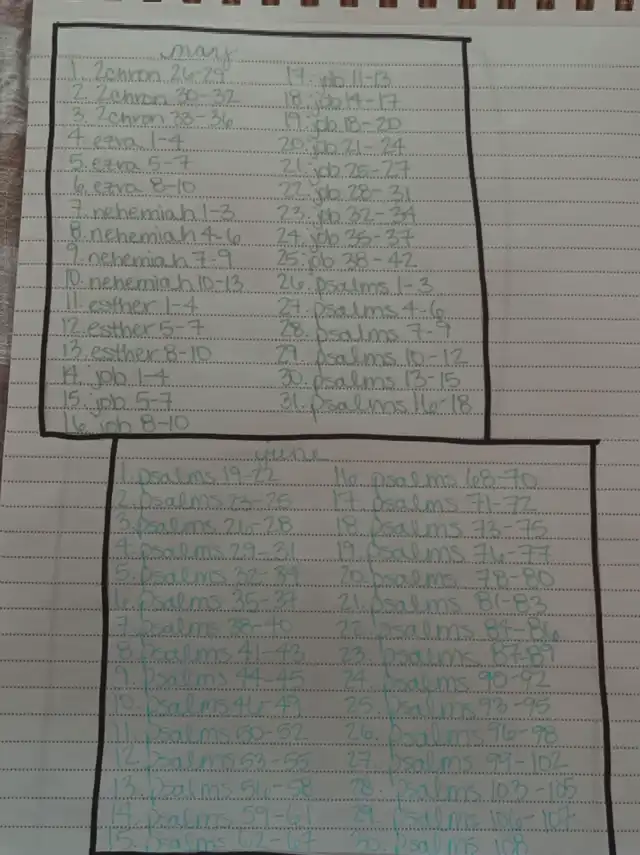 may
1. 2chron 26-29
2. 2chron 30-32
3. 2chron 33-36
4. ezra 1-4
5. ezra 5-7
6. ezra 8-10
7. nehemiah 1-3
8. nehemiah 4-6
9. nehemiah 7-9
10. nehemiah 10-13
11. esther 1-4
12. esther 5-7
13. esther 8-10
14. job 1-4
15. job 5-7
16. job 8-10
17. job 11-13
18. job 14-17
19. job 18-20
20. job 21-24
21. job 25-27
22. job 28-31
23. job 32-34
24. job 35-37
25. job 38-42
26. psalms 1-3
27. psalms 4-6
28. psalms 7-9
29. psalms 10-12
30. psalms 13-15
31. psalms 16-18
june
1. psalms 19-22
2. psalms 23-25
3. psalms 26-28
4. psalms 29-31
5. psalms 32-34
6. psalms 35-37
7. psalms 38-40
8. psalms 41-43
9. psalms 44-45
10. psalms 46-49
11. psalms 50-52
12. psalms 53-55
13. psalms 56-58
14. psalms 59-61
15. psalms 62-67
16. psalms 68-70
17. psalms 71-72
18. psalms 73-75
19. psalms 76-77
20. psalms 78-80
21. psalms 81-83
22. psalms 84-86
23. psalms 87-89
24. psalms 90-92
25. psalms 93-95
26. psalms 96-98
27. psalms 99-102
28. psalms 103-105
29. psalms 106-107
30. psalms 108